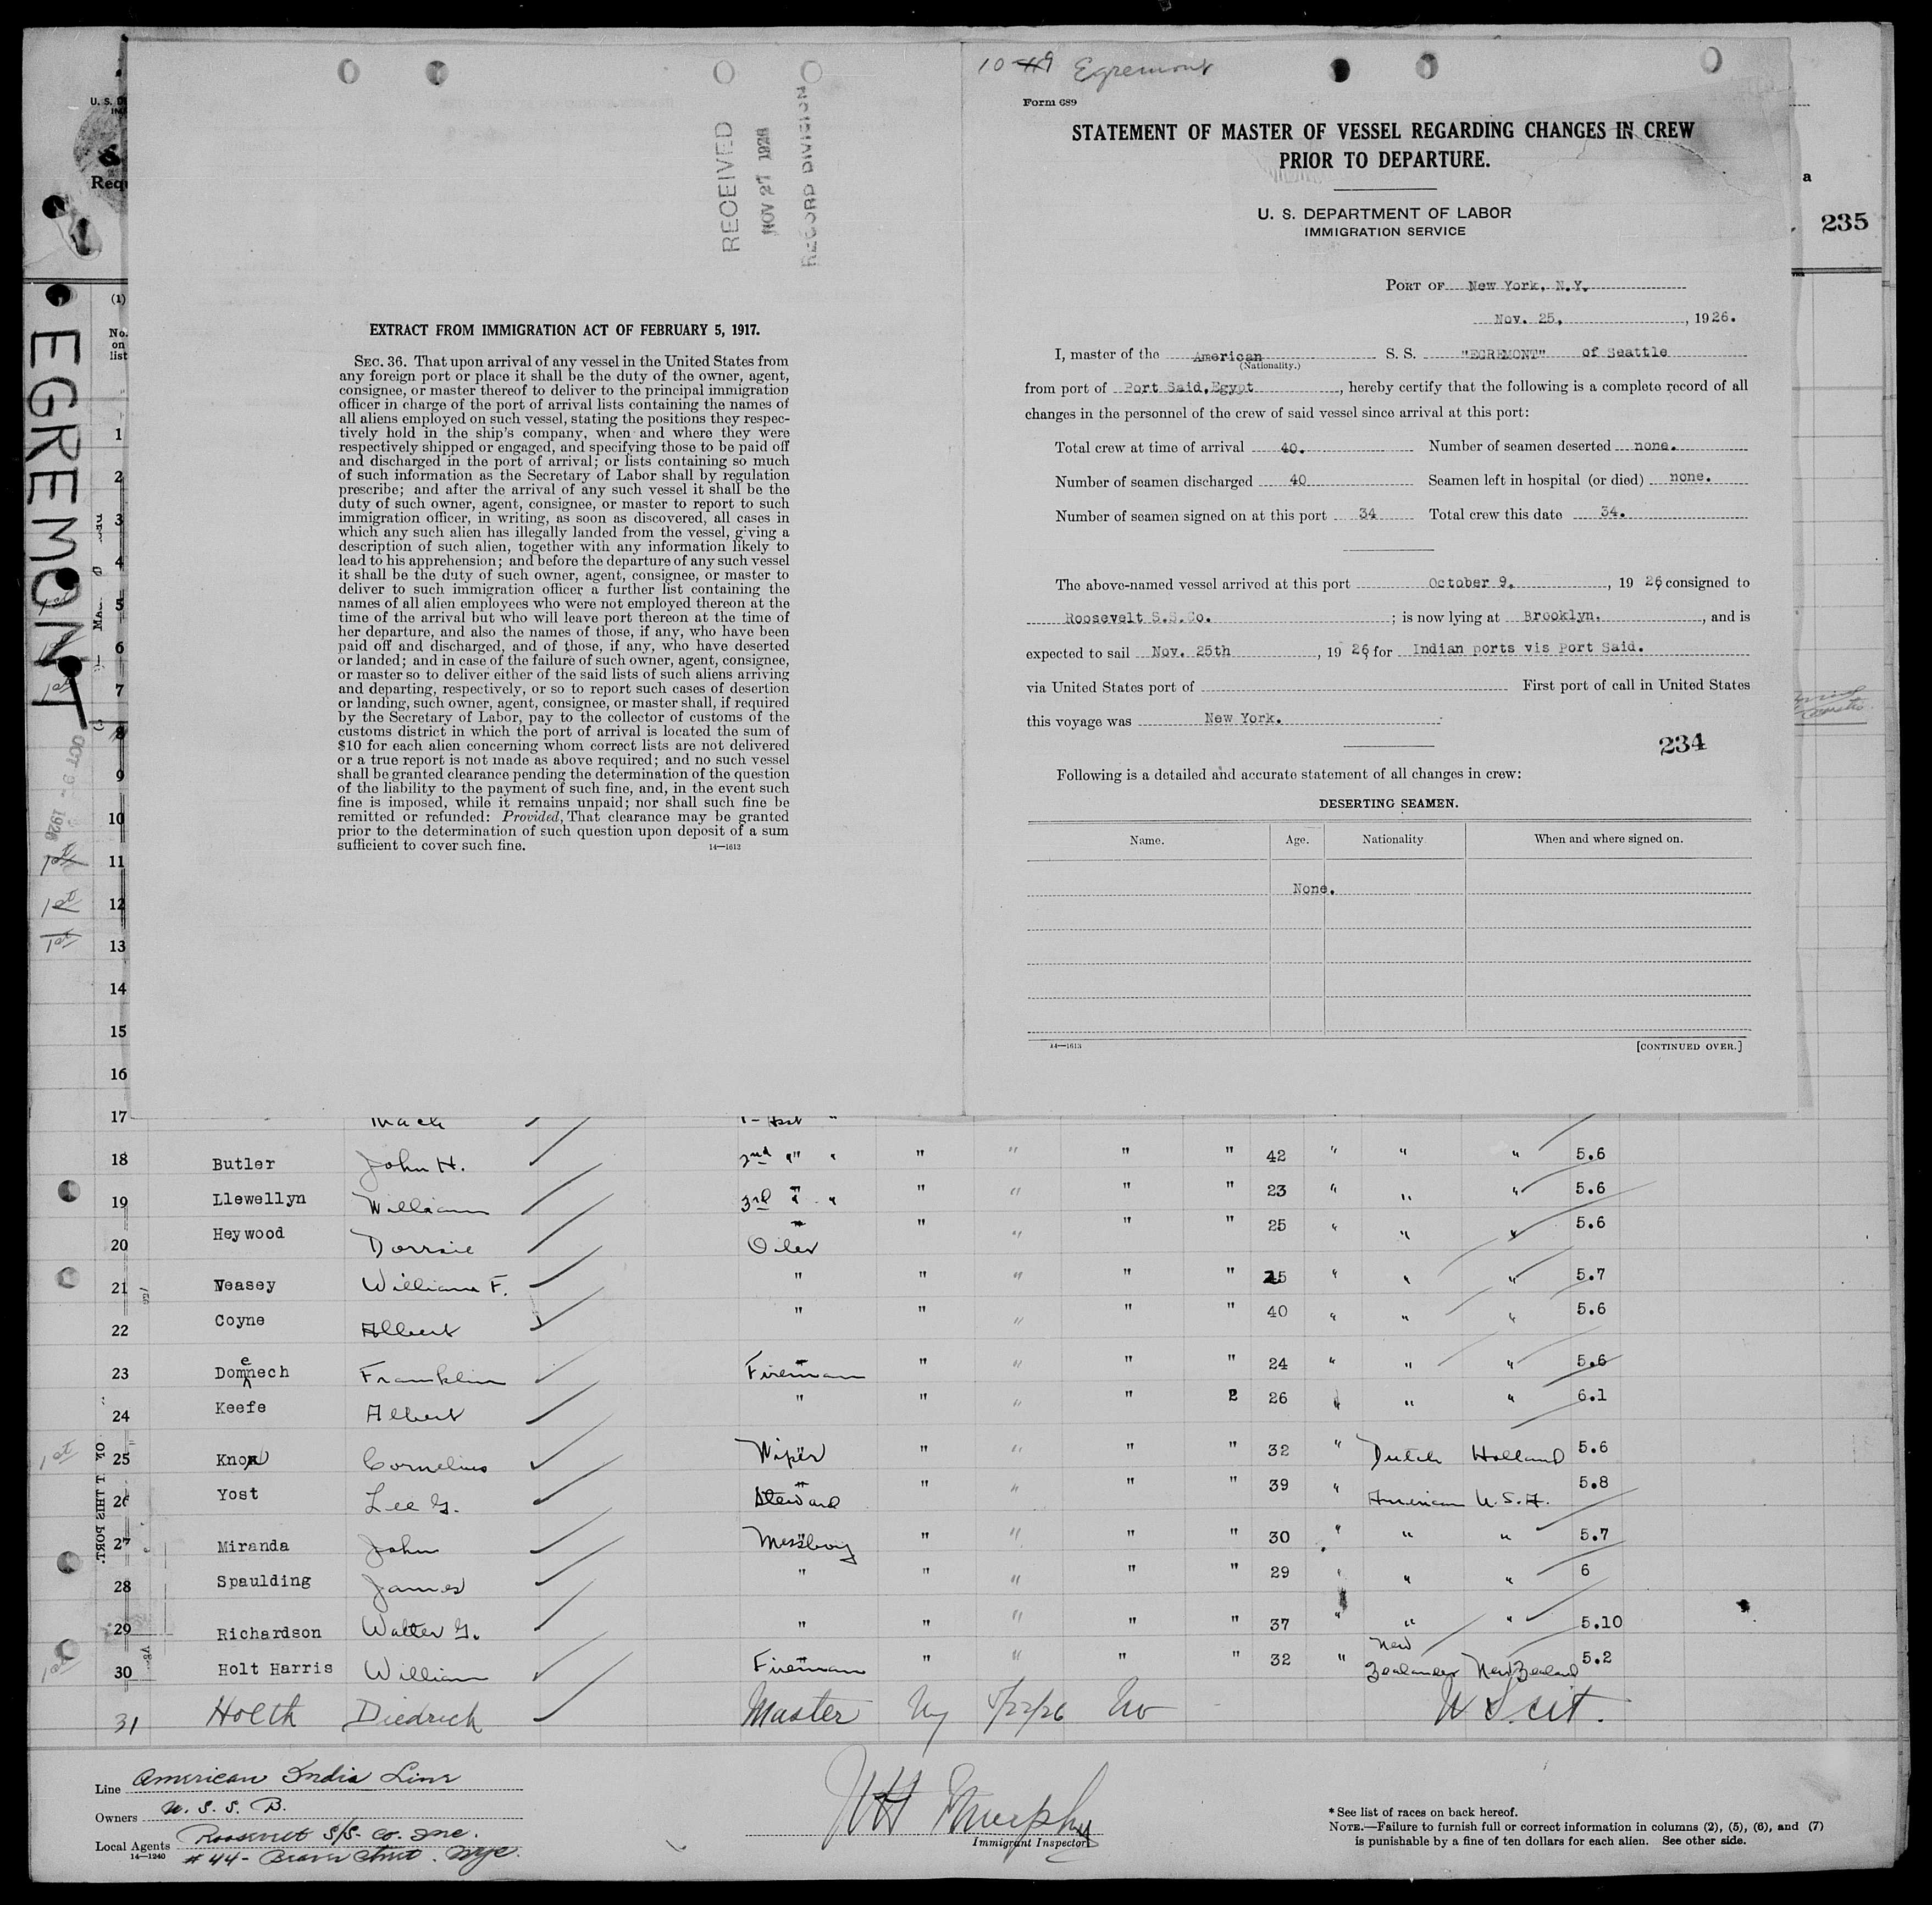 10-9 Egremont
Form 689
STATEMENT OF MASTER OF VESSEL REGARDING CHANGES IN CREW
PRIOR TO DEPARTURE.
U. S. DEPARTMENT OF LABOR
IMMIGRATION SERVICE
PORT OF New York, N.Y.
Nov. 25, , 1926.
I, master of the American S. S. "EGREMONT" of Seattle
(Nationality.)
from port of Port Said, Egypt , hereby certify that the following is a complete record of all
changes in the personnel of the crew of said vessel since arrival at this port:
Total crew at time of arrival 40. Number of seamen deserted none.
Number of seamen discharged 40 Seamen left in hospital (or died) none.
Number of seamen signed on at this port 34 Total crew this date 34.
The above-named vessel arrived at this port October 9. , 19 26, consigned to
Roosevelt S.S.Co. ; is now lying at Brooklyn. , and is
expected to sail Nov. 25th , 19 26, for Indian ports vis Port Said.
via United States port of First port of call in United States
this voyage was New York.
234
Following is a detailed and accurate statement of all changes in crew:
DESERTING SEAMEN.
Name. Age. Nationality When and where signed on.
None.
14—1613 [CONTINUED OVER.]
RECEIVED
NOV 27 1926
RECORD DIVISION
EXTRACT FROM IMMIGRATION ACT OF FEBRUARY 5, 1917.
SEC. 36. That upon arrival of any vessel in the United States from
any foreign port or place it shall be the duty of the owner, agent,
consignee, or master thereof to deliver to the principal immigration
officer in charge of the port of arrival lists containing the names of
all aliens employed on such vessel, stating the positions they respec-
tively hold in the ship's company, when and where they were
respectively shipped or engaged, and specifying those to be paid off
and discharged in the port of arrival; or lists containing so much
of such information as the Secretary of Labor shall by regulation
prescribe; and after the arrival of any such vessel it shall be the
duty of such owner, agent, consignee, or master to report to such
immigration officer, in writing, as soon as discovered, all cases in
which any such alien has illegally landed from the vessel, giving a
description of such alien, together with any information likely to
lead to his apprehension; and before the departure of any such vessel
it shall be the duty of such owner, agent, consignee, or master to
deliver to such immigration officer a further list containing the
names of all alien employees who were not employed thereon at the
time of the arrival but who will leave port thereon at the time of
her departure, and also the names of those, if any, who have been
paid off and discharged, and of those, if any, who have deserted
or landed; and in case of the failure of such owner, agent, consignee,
or master so to deliver either of the said lists of such aliens arriving
and departing, respectively, or so to report such cases of desertion
or landing, such owner, agent, consignee, or master shall, if required
by the Secretary of Labor, pay to the collector of customs of the
customs district in which the port of arrival is located the sum of
$10 for each alien concerning whom correct lists are not delivered
or a true report is not made as above required; and no such vessel
shall be granted clearance pending the determination of the question
of the liability to the payment of such fine, and, in the event such
fine is imposed, while it remains unpaid; nor shall such fine be
remitted or refunded: Provided, That clearance may be granted
prior to the determination of such question upon deposit of a sum
sufficient to cover such fine. 14—1613
235
EGREMONT
OCT 9 - 1926
(1)
No.
on
list
1
2
3
4
5
6
7
8
9
10
11
12
13
14
15
16
17 Mack
18 Butler John H. 2nd " " " " " " 42 " " " 5.6
19 Llewellyn William 3rd " " " " " " 23 " " " 5.6
20 Heywood Dorrsie Oiler " " " " 25 " " " 5.6
21 Veasey William F. " " " " " 25 " " " 5.7
22 Coyne Albert " " " " " 40 " " " 5.6
23 Domenech Franklin Fireman " " " " 24 " " " 5.6
24 Keefe Albert " " " " 2 26 " " " 6.1
25 Knox Cornelius Wiper " " " " 32 " Dutch Holland 5.6
26 Yost Lee G. Steward " " " " 39 " American U.S.A. 5.8
27 Miranda John Messboy " " " " 30 " " " 5.7
28 Spaulding James " " " " " 29 " " " 6
29 Richardson Walter G. " " " " " 37 " " " 5.10
30 Holt Harris William Fireman " " " " 32 " New Zealander New Zealand 5.2
31 Holth Diedrick Master Ny 5/22/26 No - U S. cit.
Line American India Line
Owners U. S. S. B.
Local Agents Roosevelt S/S. Co. Inc.
14—1240 #44- Beaver Street. NYC.
Murphy
Immigrant Inspector
* See list of races on back hereof.
NOTE.—Failure to furnish full or correct information in columns (2), (5), (6), and (7)
is punishable by a fine of ten dollars for each alien. See other side.